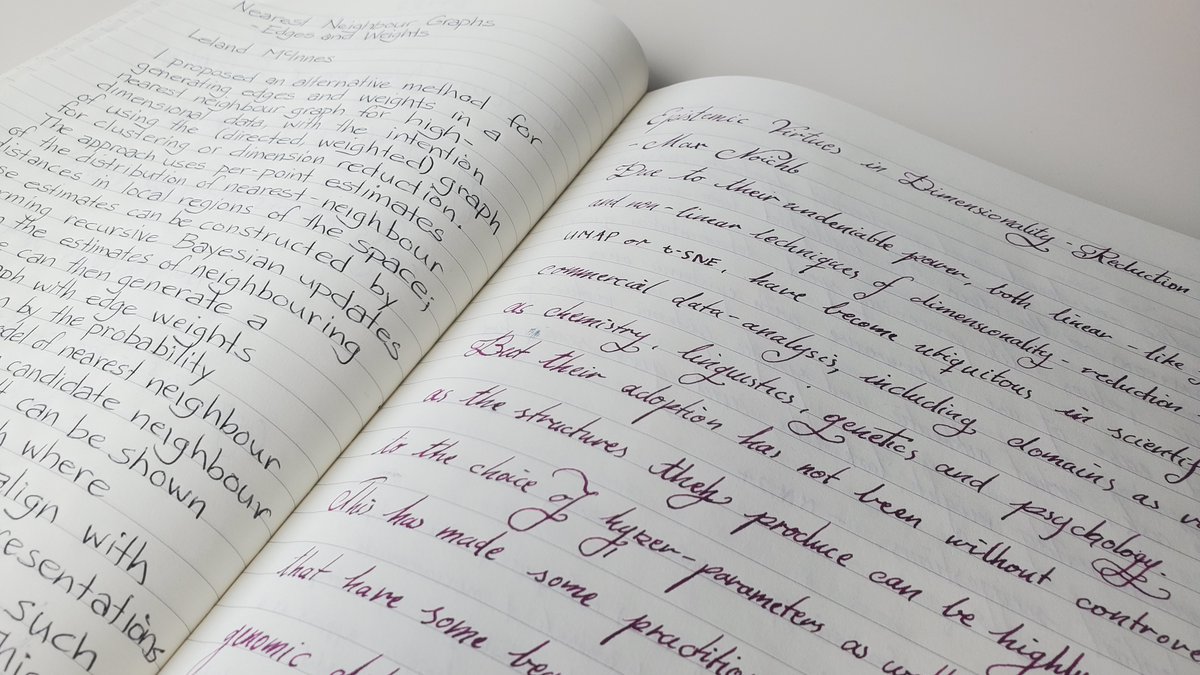 Nearest Neighbour Graphs
- Edges and Weights
Leland McInnes
I proposed an alternative method for
generating edges and weights in a
nearest neighbour graph for high-
dimensional data with the intention
of using the (directed, weighted) graph
for clustering or dimension reduction.
The approach uses per-point estimates
of the distribution of nearest-neighbour
distances in local regions of the space;
estimates can be constructed by
recursive Bayesian updates
the estimates of neighbouring
can then generate a
with edge weights
by the probability
of nearest neighbour
candidate neighbour
can be shown
where
align with
such
Epistemic Virtues in Dimensionality-Reduction
- Max Noichl
Due to their undeniable power, both linear - like
and non-linear techniques of dimensionality-reduction
UMAP or t-SNE, have become ubiquitous in
commercial data-analysis, including domains as
as chemistry, linguistics, genetics and psychology.
But their adoption has not been without
as the structures they produce can be highly
to the choice of hyper-parameters as
This has made some
that have some
genomic